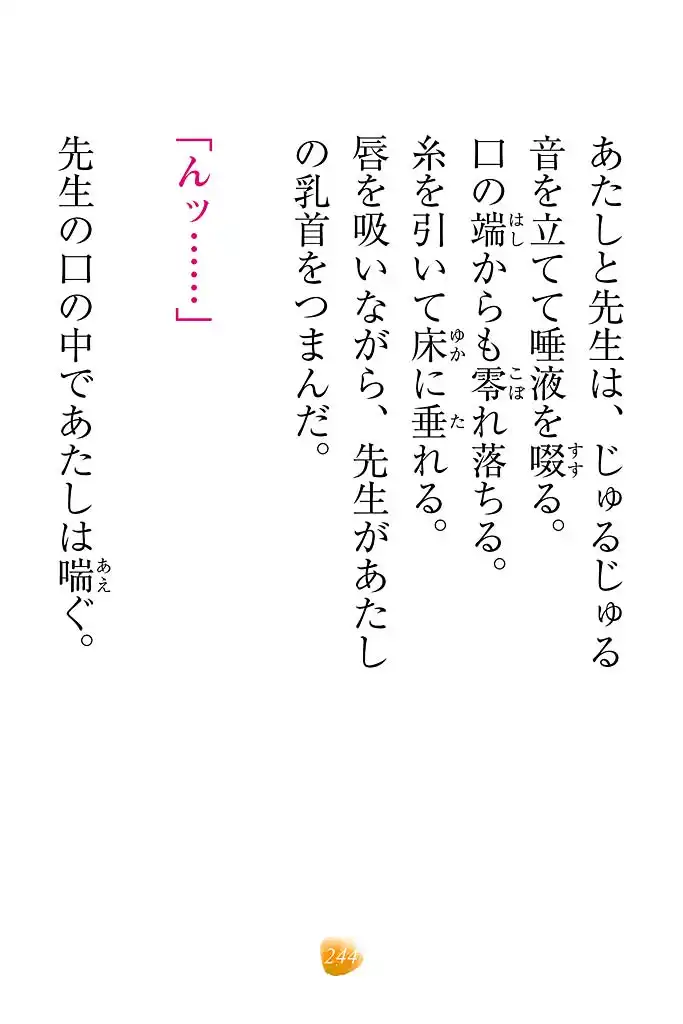 あたしと先生は、じゅるじゅる
音を立てて唾液を啜る。
口の端からも零れ落ちる。
糸を引いて床に垂れる。
唇を吸いながら、先生があたし
の乳首をつまんだ。
「んッ……」
先生の口の中であたしは喘ぐ。
244